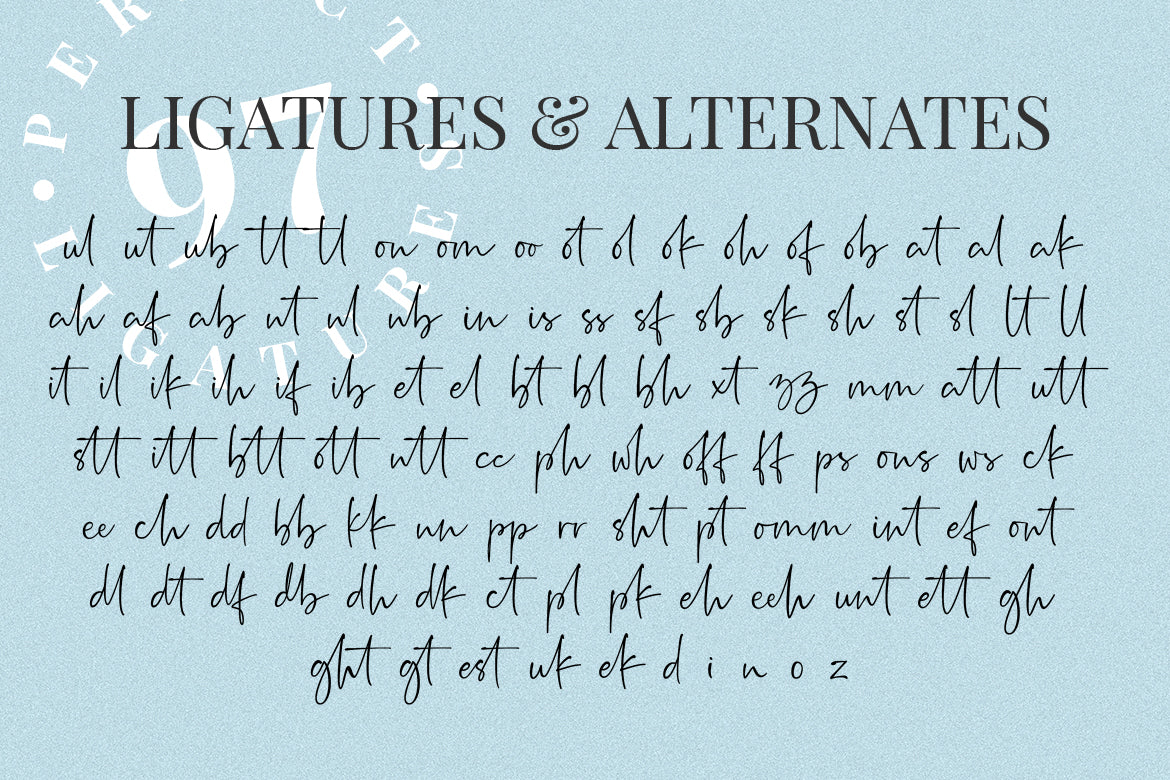 • PERFECT • LIGATURES
97
LIGATURES & ALTERNATES
ul ut ub tt tl on om oo ot ol ok oh of ob at al ak
ah af ab nt nl nb in is ss sf sb sk sh st sl lt ll
it il ik ih if ib et el bt bl bh xt zz mm att utt
stt itt btt ott ntt cc ph wh off ff ps ons ws ck
ee ch dd bb kk nn pp rr sht pt omm int ef ont
dl dt df db dh dk ct pl pk eh eeh unt ett gh
ght gt est uk ek d i n o z